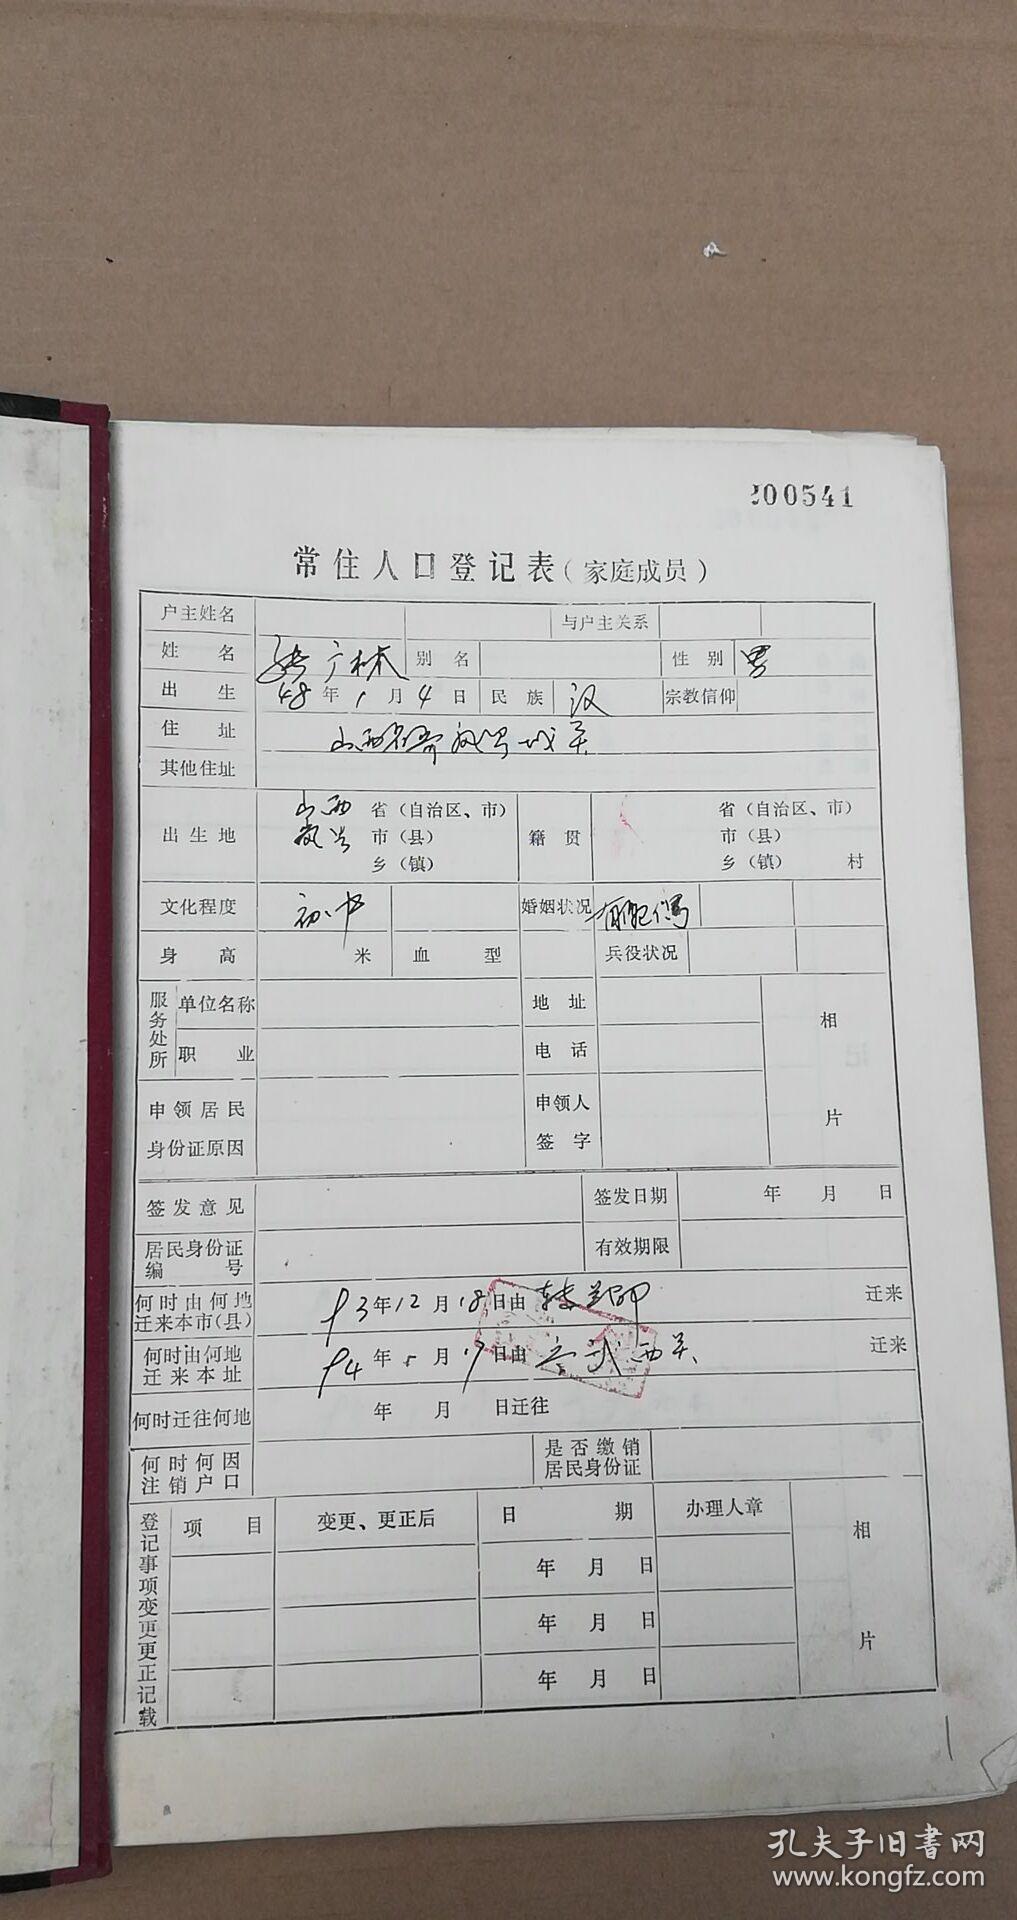 200541
常住人口登记表（家庭成员）
户主姓名 与户主关系
姓名 张广林 别名 性别 男
出生 48年1月4日 民族 汉 宗教信仰
住址 山西省 城关
其他住址
出生地 山西 省（自治区、市） 籍贯 省（自治区、市）
岚县 市（县） 市（县）
乡（镇） 乡（镇） 村
文化程度 初中 婚姻状况 有配偶
身高 米 血型 兵役状况
服务处所 单位名称 地址 相片
职业 电话
申领居民身份证原因 申领人签字
签发意见 签发日期 年 月 日
居民身份证编号 有效期限
何时由何地迁来本市(县) 93年12月18日由 迁来
何时由何地迁来本址 94年 月 日由 西关 迁来
何时迁往何地 年 月 日迁往
何时何因注销户口 是否缴销居民身份证
登记事项变更更正记载 项目 变更、更正后 日期 办理人章 相片
年 月 日
年 月 日
年 月 日
孔夫子旧书网
www.kongfz.com